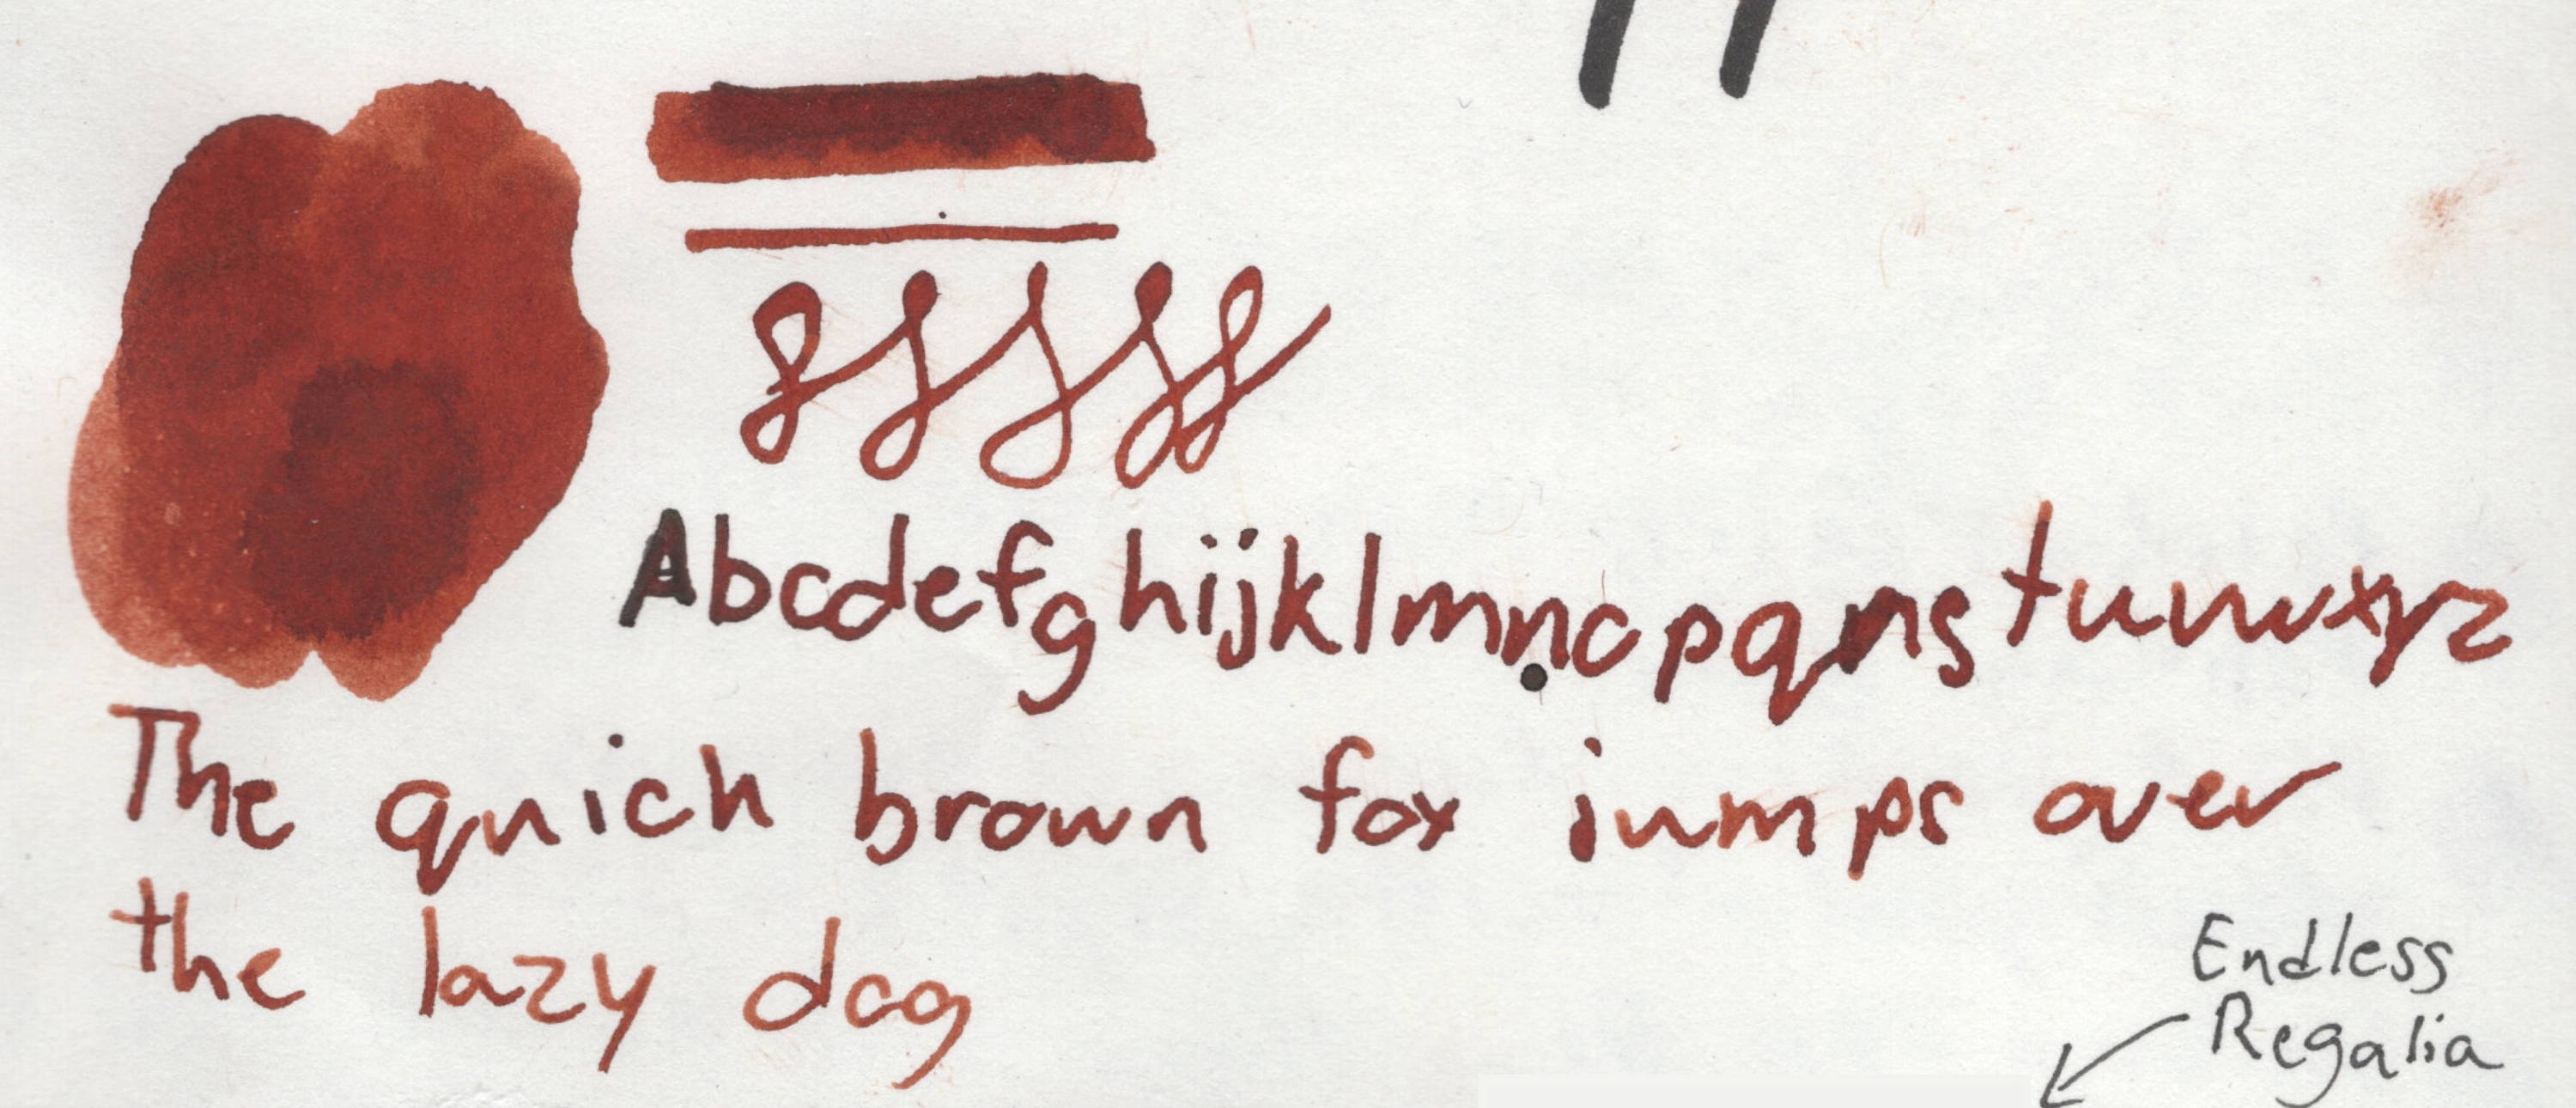 Abcdefghijklmnopqrstuvwxyz
The quick brown fox jumps over
the lazy dog
Endless
Regalia